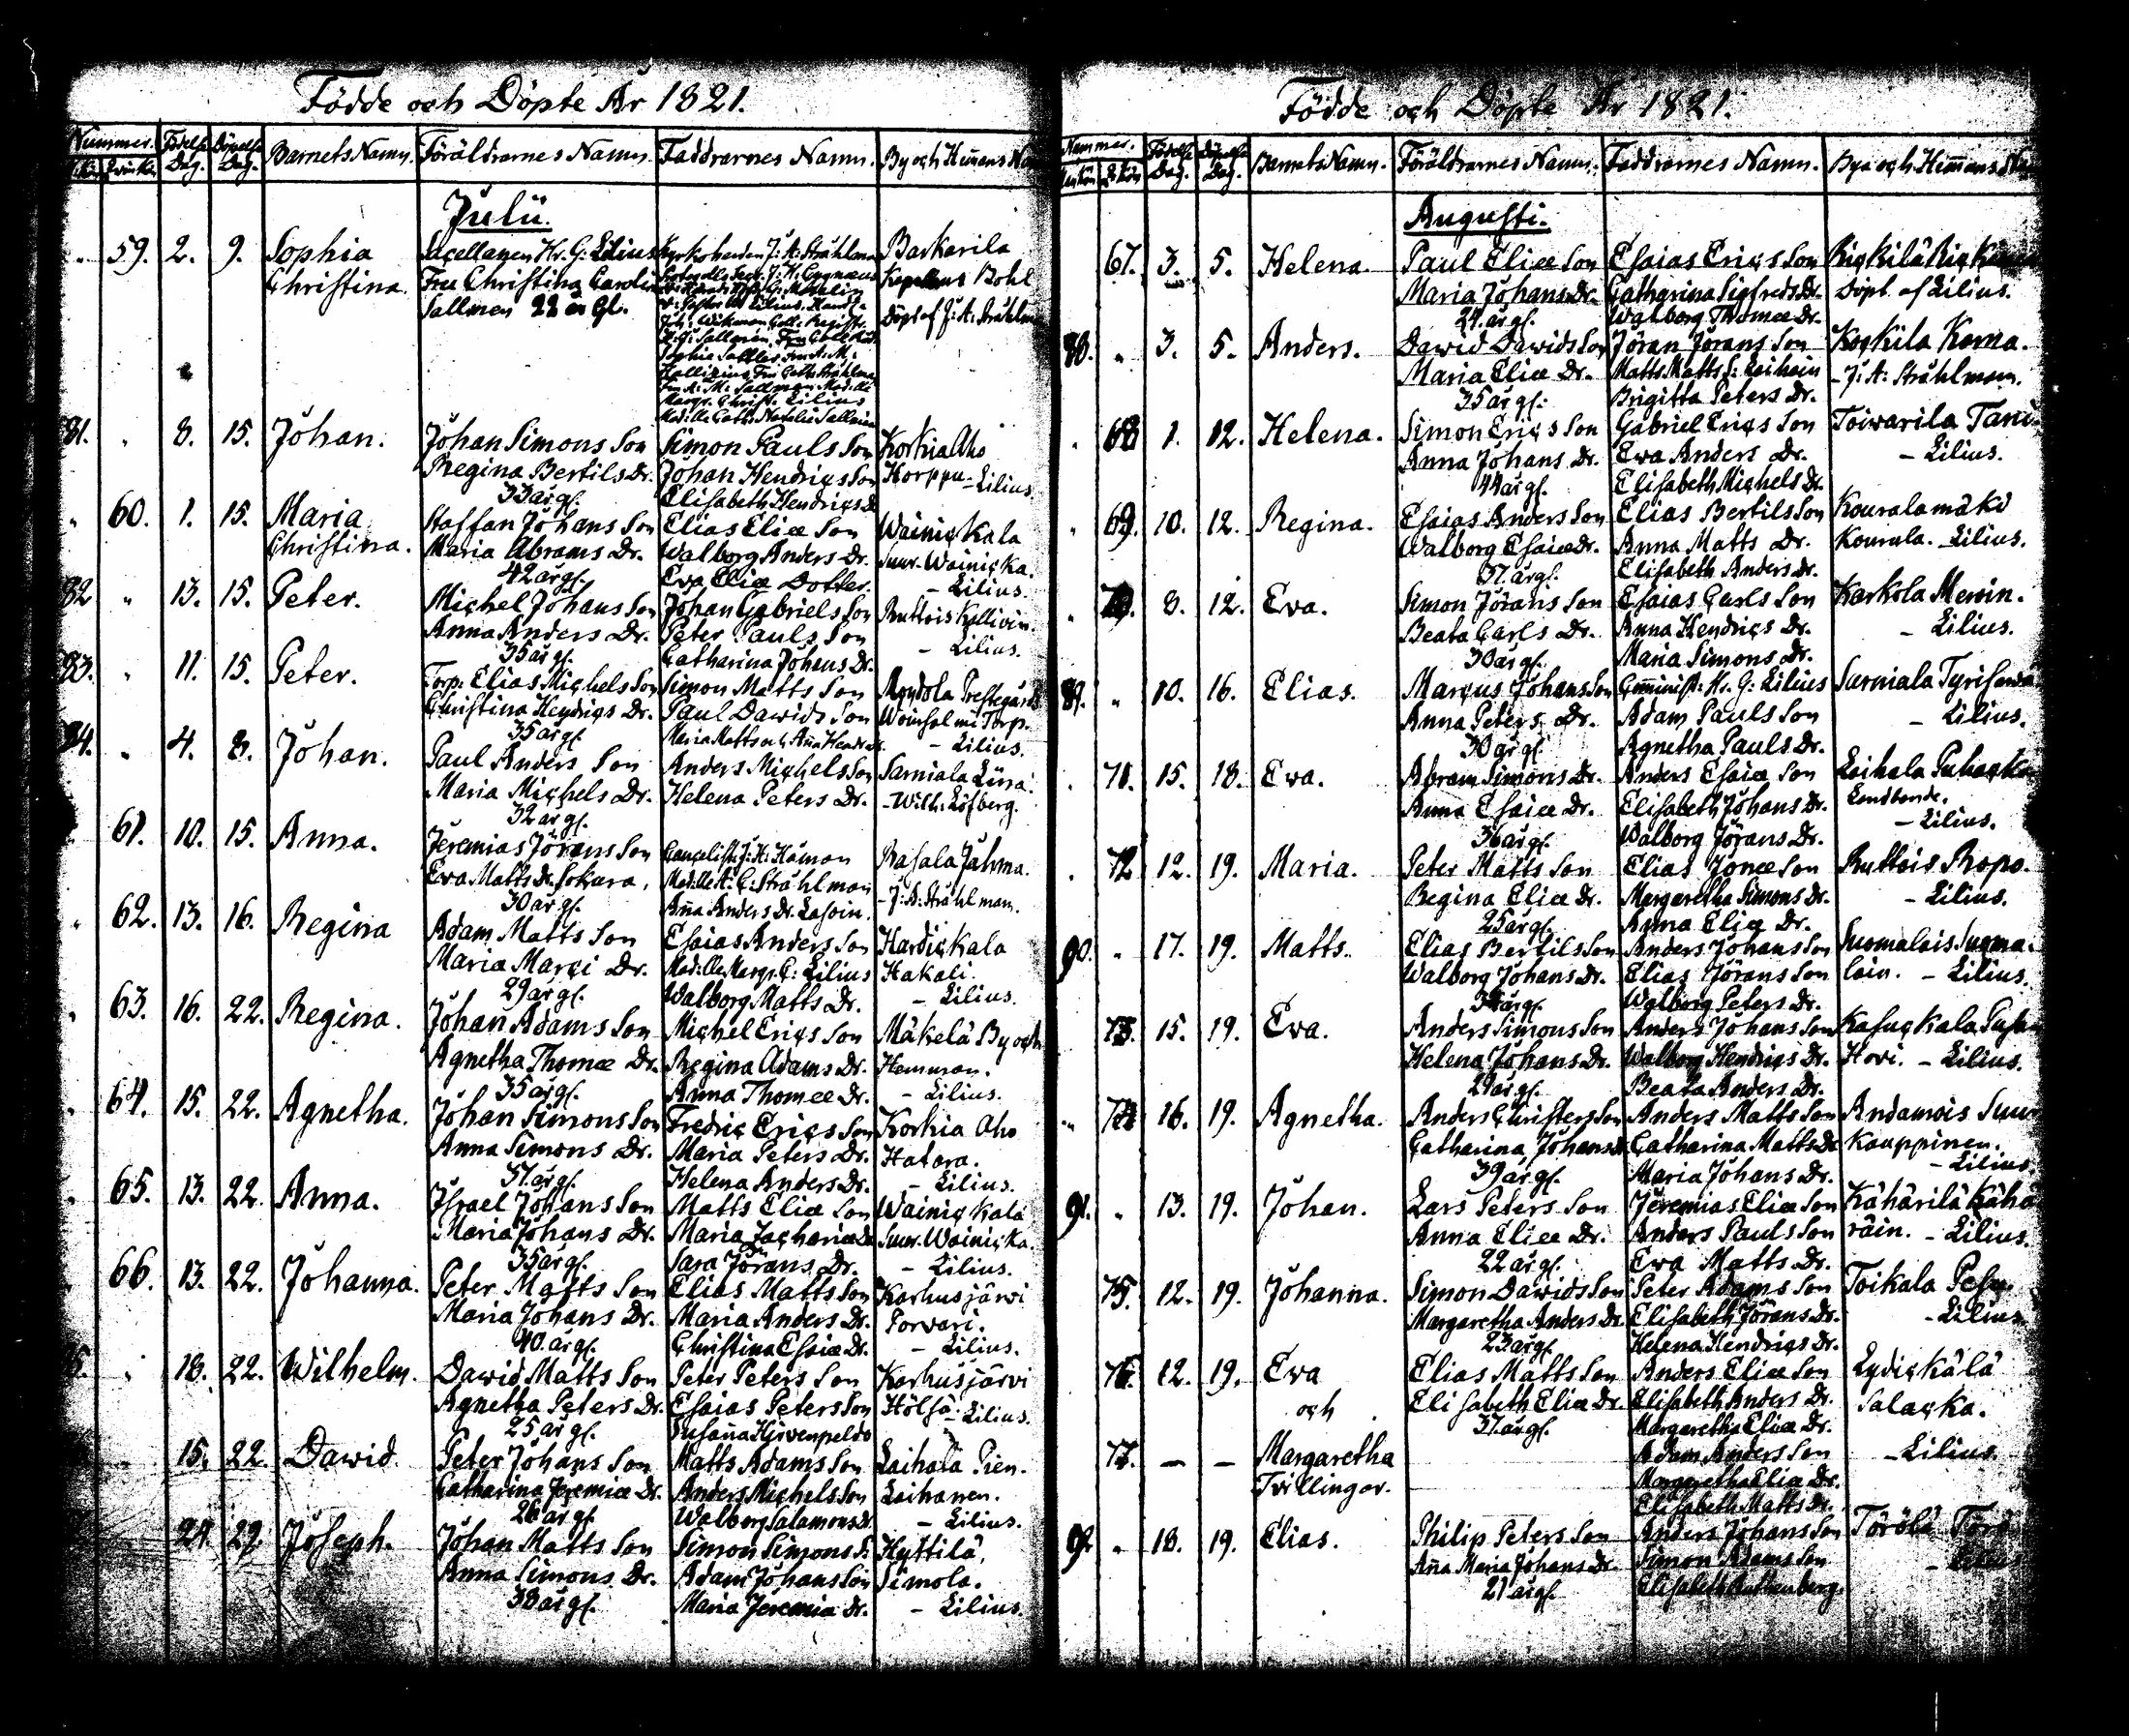 Födde och Döpte År 1821.
Nummer. Födelse Dag. Döpelse Dag. Barnets Namn. Föräldrarnes Namn. Faddrarnes Namn. By och Hemans
Qvinkön
Julii.
59. 2. 9. Sophia Sacellanen Hr. G: Lilius Kyrkoherden J: A: Stråhlman Baskarila
Christina. Fru Christina Carolin Kapellans Bohl
Sallmen 22 år gl. Döpt af J: A: Stråhlm
Joh: Wikman Coll: Regist:
Sophia
Fru Cath: Stråhlman
Fru A: M: Sallmen Mad:lle
Margr: Christ: Lilius
Mad:lle Cath: Natalia Sallmén
81. 8. 15. Johan. Johan Simons Son Simon Pauls Son Korkia Aho
Regina Bertils Dr. Johan Hendrics Son Korppu - Lilius.
33 år gl. Elisabeth Hendrics Dr
60. 1. 15. Maria Staffan Johans Son Elias Eliæ Son Wainickala
Christina. Maria Abrams Dr. Walborg Anders Dr. Suur-Wainicka.
42 år gl. Eva Eliæ Dotter. - Lilius.
82 13. 15. Peter. Michel Johans Son Johan Gabriels Son Ruttois Kallivin.
Anna Anders Dr. Peter Pauls Son - Lilius.
35 år gl. Catharina Johans Dr.
83. 11. 15. Peter. Torp: Elias Michels Son Simon Matts Son Prestegårds
Christina Hendrics Dr. Paul Dawids Son Torp.
35 år gl. Maria Matts - Lilius.
84. 4. 8. Johan. Paul Anders Son Anders Michels Son Sarniala
Maria Michels Dr. Helena Peters Dr. - Wilh: Löfberg.
32 år gl.
61. 10. 15. Anna. Jeremias Jörans Son Cancelist: J: H: Hasala
Eva Matts Dr. Mad:lle A: C: Stråhlman - J: A: Stråhlman.
30 år gl. Aña Anders Dr.
62. 13. 16. Regina Adam Matts Son Esaias Anders Son Hardickala
Maria Marci Dr. Mad:lle Margr. C: Lilius Hakali.
29 år gl. Walborg Matts Dr. - Lilius.
63. 16. 22. Regina. Johan Adams Son Michel Erics Son Mäkelä By och
Agnetha Thomæ Dr. Regina Adams Dr. Hemman.
35 år gl. Anna Thomæ Dr. - Lilius.
64. 15. 22. Agnetha. Johan Simons Son Fredric Erics Son Korkia Aho
Anna Simons Dr. Maria Peters Dr. Hatara.
37 år gl. Helena Anders Dr. - Lilius.
65. 13. 22. Anna. Israel Johans Son Matts Eliæ Son Wainickala
Maria Johans Dr. Maria Zachariæ Dr Suur-Wainicka.
35 år gl. Sara Jörans Dr. - Lilius.
66. 13. 22. Johanna. Peter Matts Son Elias Matts Son Karhusjärvi
Maria Johans Dr. Maria Anders Dr. Torvari.
40 år gl. Christina Esaiæ Dr. - Lilius.
18. 22. Wilhelm. Dawid Matts Son Peter Peters Son Karhusjärvi
Agnetha Peters Dr. Esaias Peters Son Hölsä. - Lilius.
25 år gl. Susaña Hirvenpeldo
15. 22. Dawid. Peter Johans Son Matts Adams Son Laihala Pien.
Catharina Jeremiæ Dr. Anders Michels Son Laihanen.
26 år gl. Walborg Salamons Dr. - Lilius.
22. Joseph. Johan Matts Son Simon Simons S: Hyttilä,
Anna Simons Dr. Adam Johans Son Simola.
38 år gl. Maria Jeremiæ Dr. - Lilius.
Födde och Döpte År 1821.
Nummer. Födelse Dag. Döpelse Dag. Barnets Namn. Föräldrarnes Namn. Faddrarnes Namn. Bya och Hem̄ans
Augusti.
67. 3. 5. Helena. Paul Eliæ Son Esaias Erics Son
Maria Johans Dr. Catharina Sigfreds Dr. Döpt af Lilius.
år gl. Walborg Thomæ Dr.
3. 5. Anders. Dawid Dawids Son Jöran Jörans Son Kockila Koma.
Maria Eliæ Dr. Matts Matts S: Laihain - J: A: Stråhlman.
35 år gl. Brigitta Peters Dr.
68 1. 12. Helena. Simon Erics Son Gabriel Erics Son Toiwarila Tani
Anna Johans Dr. Ewa Anders Dr. - Lilius.
44 år gl. Elisabeth Michels Dr.
69. 10. 12. Regina. Esaias Anders Son Elias Bertils Son Kouralamäki
Walborg Esaiæ Dr. Anna Matts Dr. Kourula. - Lilius.
37 år gl. Elisabeth Anders Dr.
8. 12. Eva. Simon Jörans Son Esaias Carls Son Karkola
Beata Carls Dr. Anna Hendrics Dr. - Lilius.
30 år gl. Maria Simons Dr.
89. 10. 16. Elias. Marcus Johans Son Hr. G: Lilius Surniala
Anna Peters Dr. Adam Pauls Son - Lilius.
30 år gl. Agnetha Pauls Dr.
71. 15. 18. Eva. Abram Simons Dr. Anders Esaiæ Son Laihala
Anna Esaiæ Dr. Elisabeth Johans Dr. Landbonde.
36 år gl. Walborg Jörans Dr. - Lilius.
72 12. 19. Maria. Peter Matts Son Elias Jonæ Son Ruttois Ropo.
Regina Eliæ Dr. Margaretha Simons Dr. - Lilius.
25 år gl. Anna Eliæ Dr.
90. 17. 19. Matts. Elias Bertils Son Anders Johans Son Suomalais Suoma-
Walborg Johans Dr. Elias Jörans Son lain. - Lilius.
år gl. Walborg Peters Dr.
73. 15. 19. Eva. Anders Simons Son Anders Johans Son Kasuckala
Helena Johans Dr. Walborg Hendrics Dr. Hovi. - Lilius.
29 år gl. Beata Anders Dr.
16. 19. Agnetha. Anders Christers Son Anders Matts Son Andamois Suur
Catharina Johans Dr Catharina Matts Dr Kauppinen.
39 år gl. Maria Johans Dr. - Lilius.
91. 13. 19. Johan. Lars Peters Son Jeremias Eliæ Son Kähärilä Kähä
Anna Eliæ Dr. Anders Pauls Son räin. - Lilius.
22 år gl. Ewa Matts Dr.
75. 12. 19. Johanna. Simon Dawids Son Peter Adams Son Toikala
Margaretha Anders Dr Elisabeth Jörans Dr. - Lilius
23 år gl. Helena Hendrics Dr.
76. 12. 19. Eva Elias Matts Son Anders Eliæ Son Lydickälä
och Elisabeth Eliæ Dr. Elisabeth Anders Dr. Salacka.
37 år gl. Margaretha Eliæ Dr.
77. — — Margaretha Adam Anders Son - Lilius.
Tvillingar. Margaretha Eliæ Dr.
Elisabeth Matts Dr.
92. 18. 19. Elias. Philip Peters Son Anders Johans Son Törölä
Aña Maria Johans Dr. Simon Adams Son - Lilius
21 år gl. Elisabeth Ruthenberg.